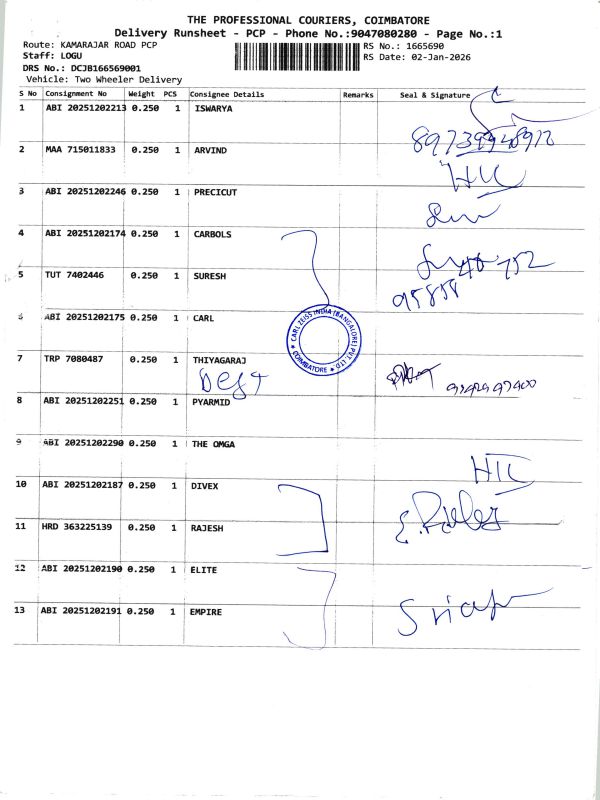 THE PROFESSIONAL COURIERS, COIMBATORE
Delivery Runsheet - PCP - Phone No.:9047080280 - Page No.:1
Route: KAMARAJAR ROAD PCP
RS No.: 1665690
Staff: LOGU
RS Date: 02-Jan-2026
DRS No.: DCJB166569001
Vehicle: Two Wheeler Delivery
S No Consignment No Weight PCS Consignee Details Remarks Seal & Signature
1 ABI 20251202213 0.250 1 ISWARYA
2 MAA 715011833 0.250 1 ARVIND
3 ABI 20251202246 0.250 1 PRECICUT
4 ABI 20251202174 0.250 1 CARBOLS
5 TUT 7402446 0.250 1 SURESH
6 ABI 20251202175 0.250 1 CARL
CARL ZEISS INDIA (BANGALORE) PVT. LTD. * COIMBATORE *
7 TRP 7080487 0.250 1 THIYAGARAJ
8 ABI 20251202251 0.250 1 PYARMID
9 ABI 20251202290 0.250 1 THE OMGA
10 ABI 20251202187 0.250 1 DIVEX
11 HRD 363225139 0.250 1 RAJESH
12 ABI 20251202190 0.250 1 ELITE
13 ABI 20251202191 0.250 1 EMPIRE